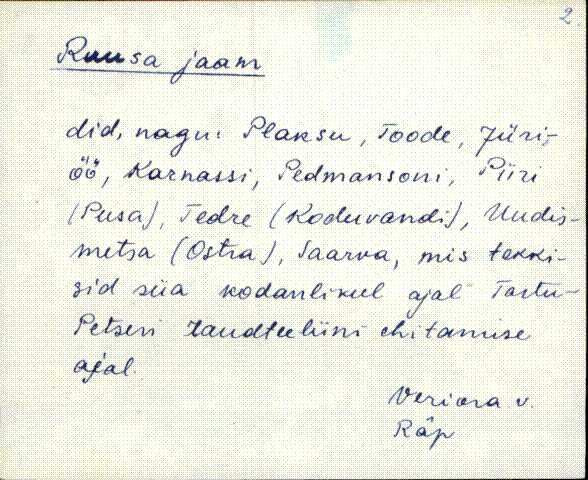 2
Ruusa jaam
did, nagu: Plaksu, Toode, Jüri-
öö, Karnassi, Pedmansoni, Piiri
(Pusa), Tedre (Koduvandi), Uudis-
metsa (Ostra), Saarva, mis tekki-
sid siia kodanlikul ajal Tartu-
Petseri raudteeliini ehitamise
ajal.
Veriora v.
Räp